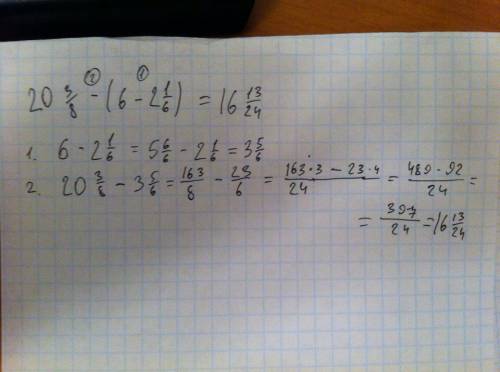 ② ①
20 3/8 - (6 - 2 1/6) = 16 13/24
1. 6 - 2 1/6 = 5 6/6 - 2 1/6 = 3 5/6
2. 20 3/8 - 3 5/6 = 163/8 - 23/6 = (163·3 - 23·4)/24 = (489 - 92)/24 =
= 397/24 = 16 13/24